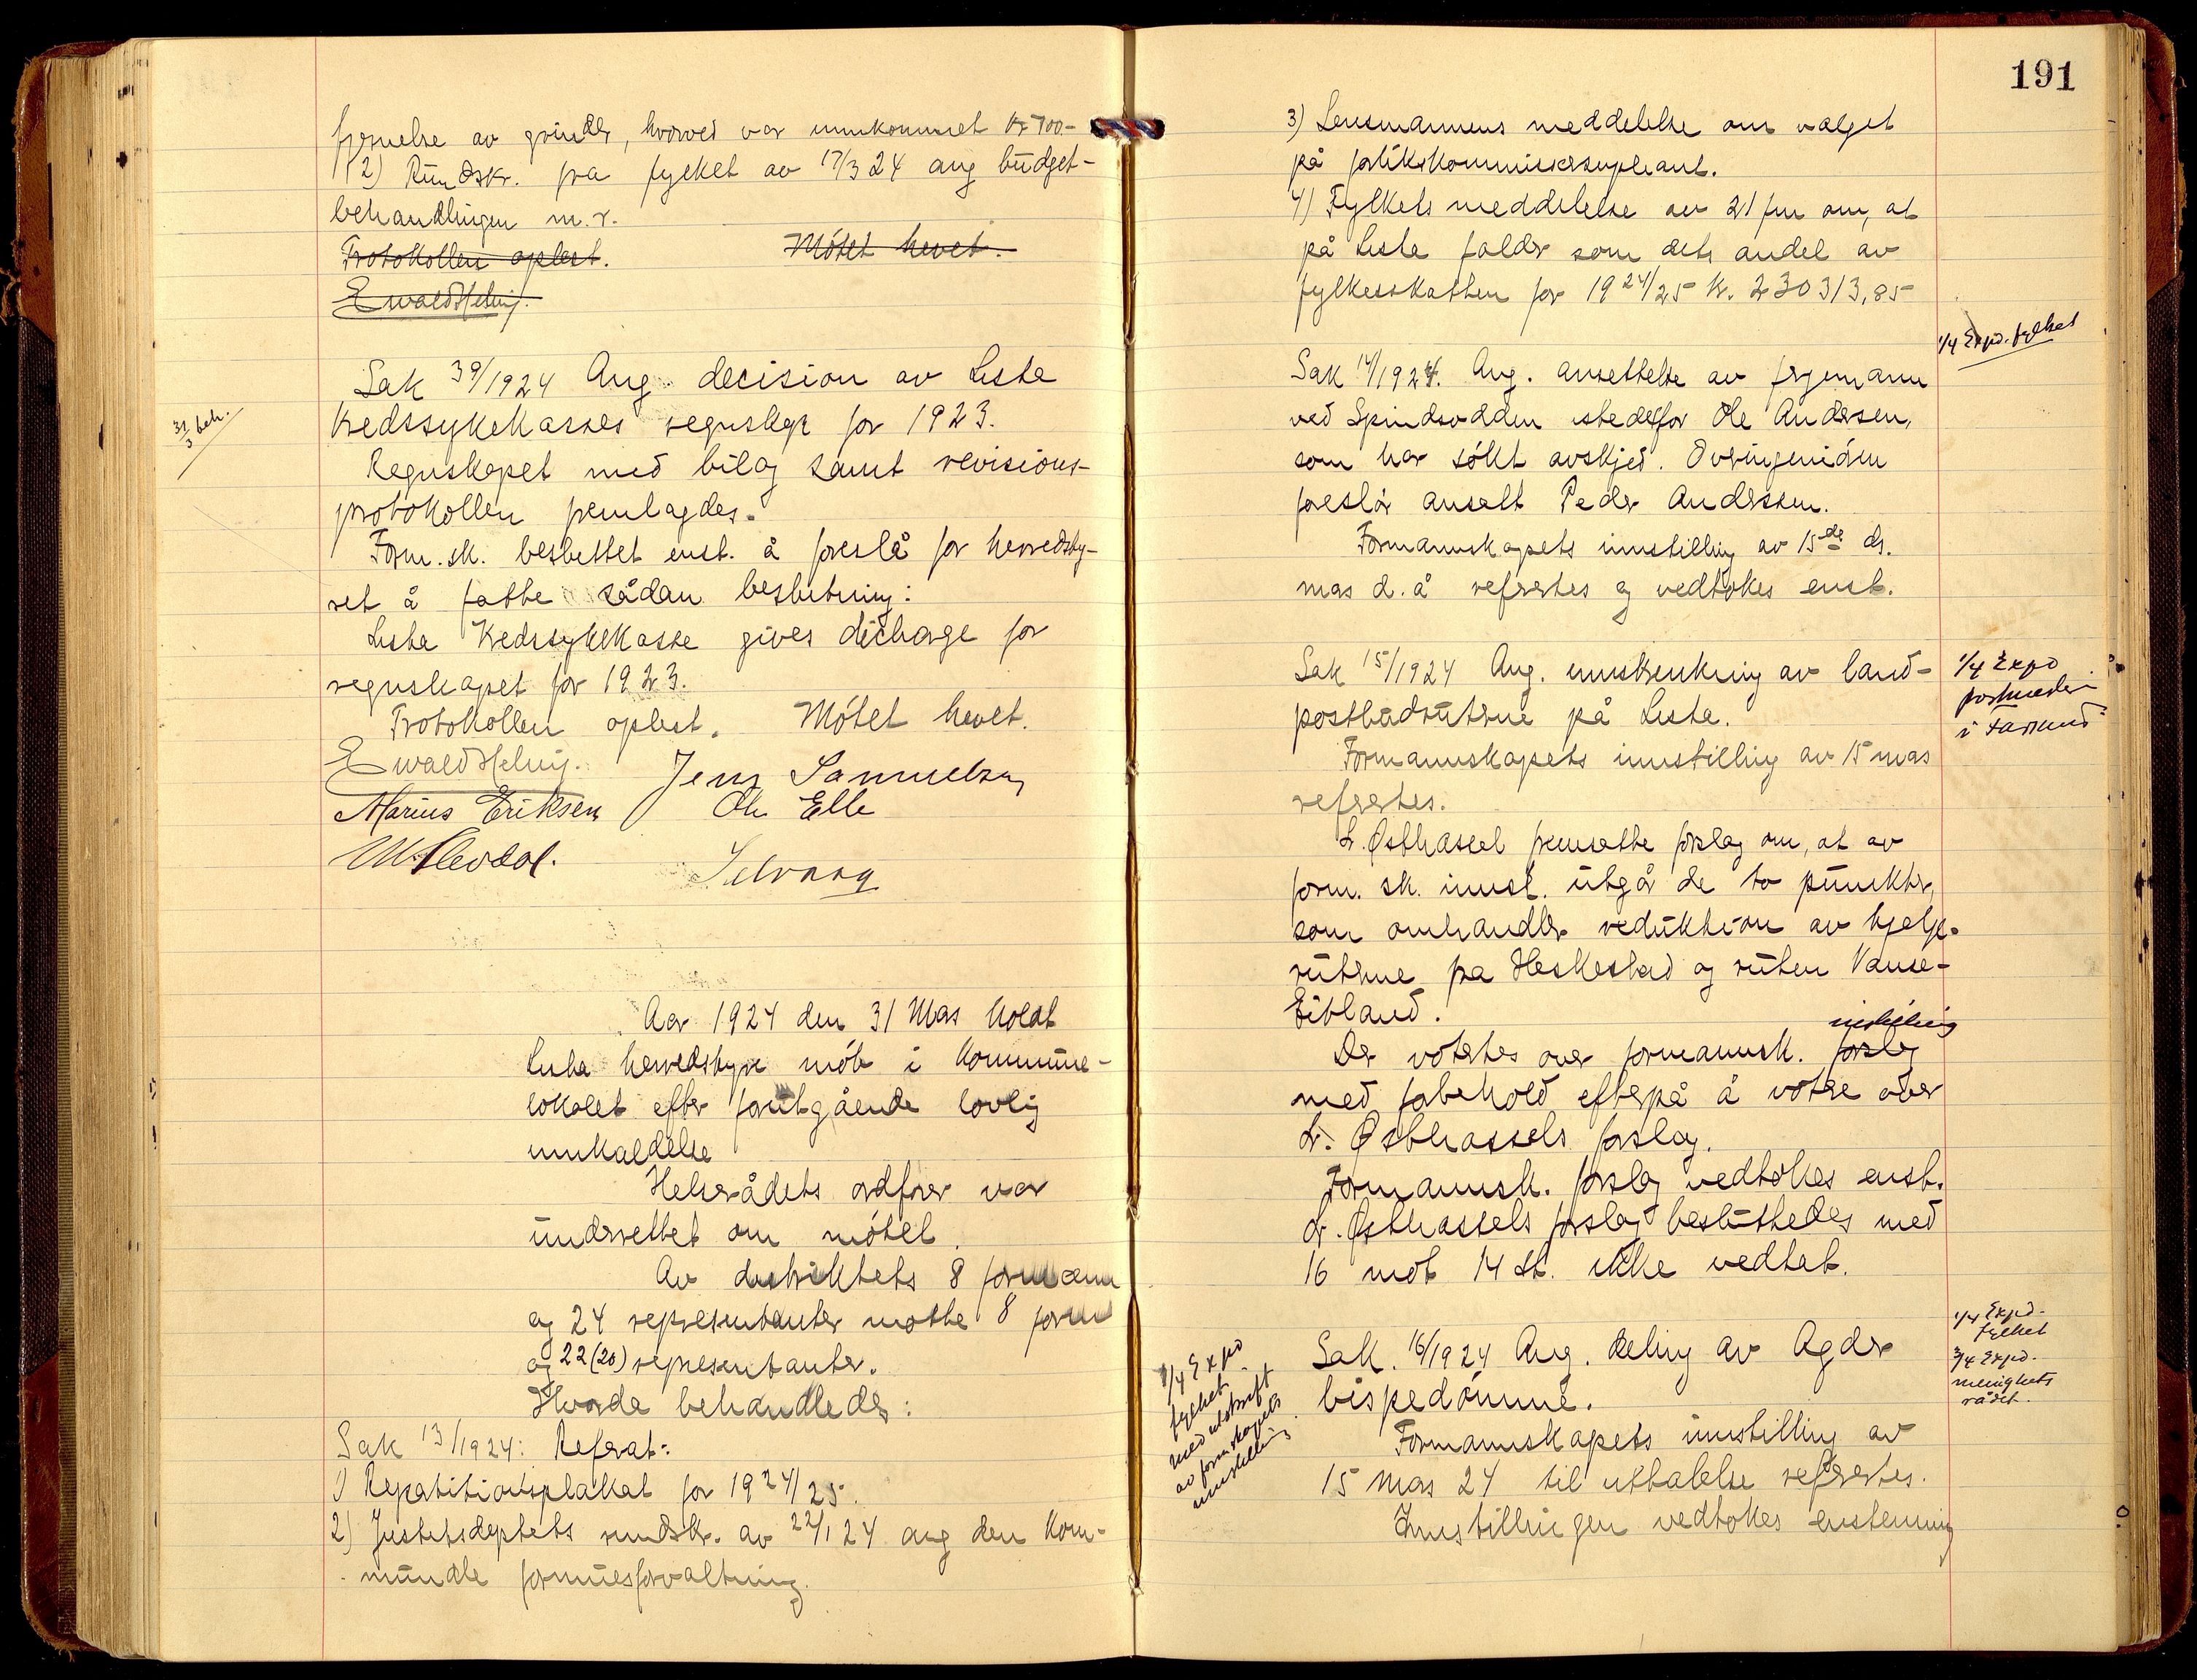 fjernelse av grinder, hvorved var innkommet kr 700.-
2) Rundskr. fra fylket av 17/3 24 ang budget-
behandlingen m.v.
Protokollen oplest. Møtet hevet.
Ewald Helvig.
31/3 beh.
Sak 39/1924 Ang. decision av Lista
kredssykekasses regnskap for 1923.
Regnskapet med bilag samt revisions-
protokollen fremlagdes.
Form.sk. besluttet enst. å foreslå for herredsty-
ret å fatte sådan beslutning:
Lista Kredssykekasse gives decharge for
regnskapet for 1923.
Protokollen oplest. Møtet hevet.
Ewald Helvig. Jens Samuelsen
Marius Eriksen Ole Elle

Aar 1924 den 31 Mars holdt
Lista herredstyre møte i kommune-
lokalet efter forutgående lovlig
innkaldelse
Helserådets ordfører var
underrettet om møtet.
Av distriktets 8 formenn
og 24 representanter møtte 8 form
og 22 (20) representanter.
Hvorda behandledes:
Sak 13/1924: Referat:
1) Repartitionsplakat for 1924/25.
2) Justitsdeptets rundskr. av 22/1 24 ang den kom-
munale formuesforvaltning.
191
3) Lensmannens meddelelse om valget
på forlikskommissærsupleant.
4) Fylkets meddelelse av 21 frm om, at
på Lista falder som dets andel av
fylkesskatten for 1924/25 kr. 230313,85
1/4 Exp. fylket
Sak 14/1924. Ang. ansettelse av fergemann
ved Spindsodden istedetfor Ole Andersen,
som har søkt avskjed. Overingeniøren
foreslår ansatt Peder Anderssen.
Formannskapets innstilling av 15de ds.
mars d. å refertes og vedtokes enst.
1/4 Expd
postmester
i Farsund
Sak 15/1924 Ang. innskrenkning av land-
postbudrutene på Lista.
Formannskapets innstilling av 15 mars
refertes.
L. Østhassel fremsatte forslag om, at av
form. sk. innst. utgår de to punkter,
som omhandler reduktion av hjelpe-
rutene fra Heskestad og ruten Vanse-
Eitland.
innstilling
Der votertes over formannsk. forslag
med forbehold efterpå å votere over
L. Østhassels forslag.
Formannsk. forslag vedtokes enst.
L. Østhassels forslag besluttedes med
16 mot 14 st. ikke vedtat.
1/4 Expd.
fylket
3/4 Expd.
menighets
rådet.
1/4 Expd
fylket
med utskrift
av formskapets
innstilling
Sak. 16/1924 Ang. deling av Agder
bispedømme.
Formannskapets innstilling av
15 mars 24 til uttalelse refertes.
Innstillingen vedtokes enstemmig